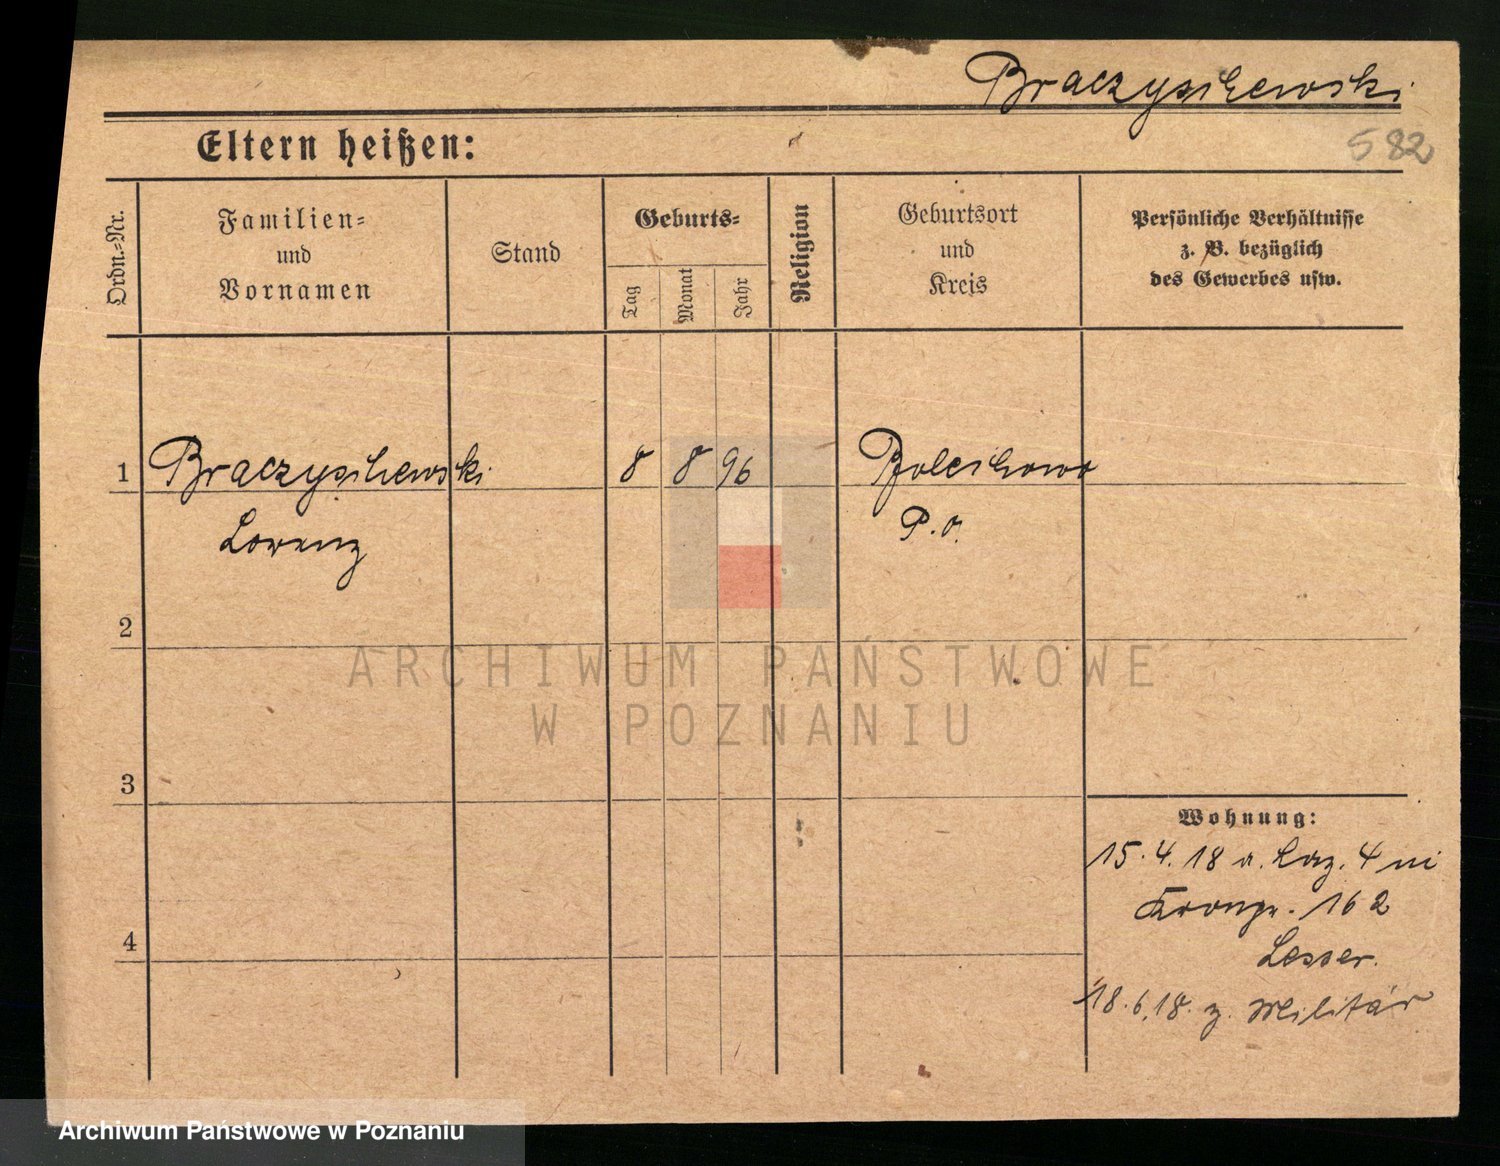 Braczyschewski
582
Eltern heißen:
Ordn.=Nr.
Familien=
und
Vornamen
Stand
Geburts=
Tag
Monat
Jahr
Religion
Geburtsort
und
Kreis
Persönliche Verhältnisse
z. B. bezüglich
des Gewerbes usw.
1 Braczyschewski 8 8 96
Lorenz P. O.
2
3
4
Wohnung:
15.4.18 a. Laz. 4 in
Krongr. 162
Lesser.
18.6.18. z. Militär
ARCHIWUM PAŃSTWOWE
W POZNANIU
Archiwum Państwowe w Poznaniu